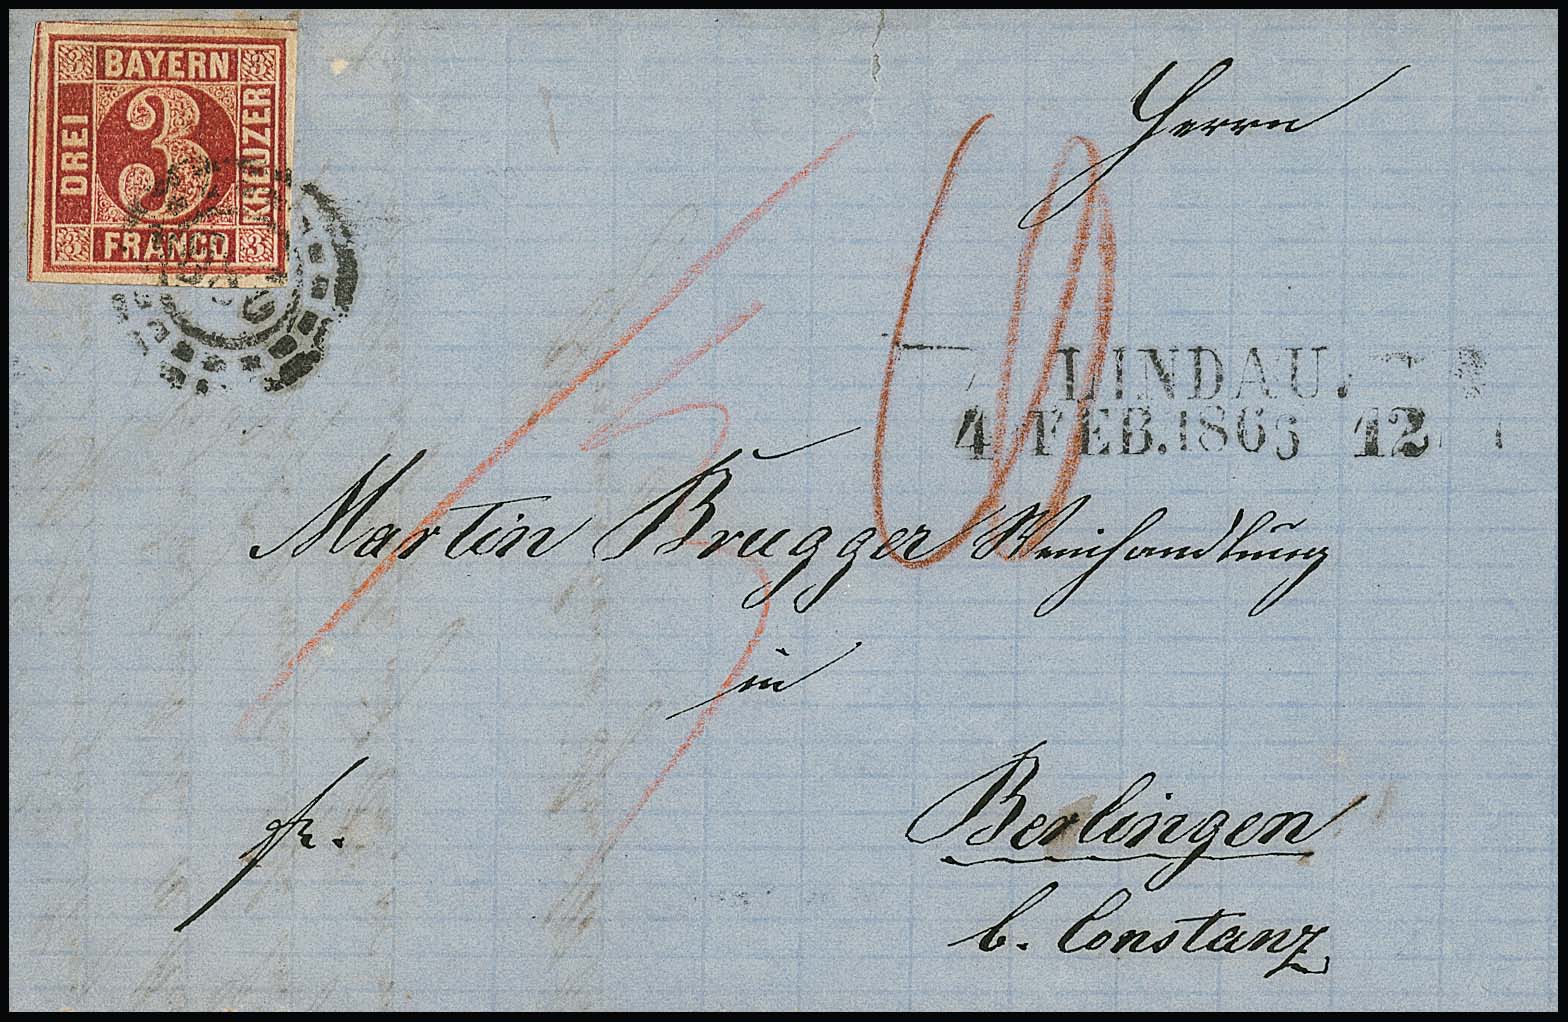 BAYERN
DREI
3
KREUZER
FRANCO
Herrn
LINDAU.
4 FEB. 1865 12
Martin Brugger Weinhandlung
3
in
Berlingen
fr.
b. Constanz